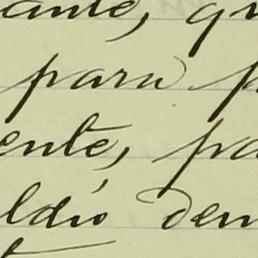 ante, qu
para p
ente, pa
ldió den